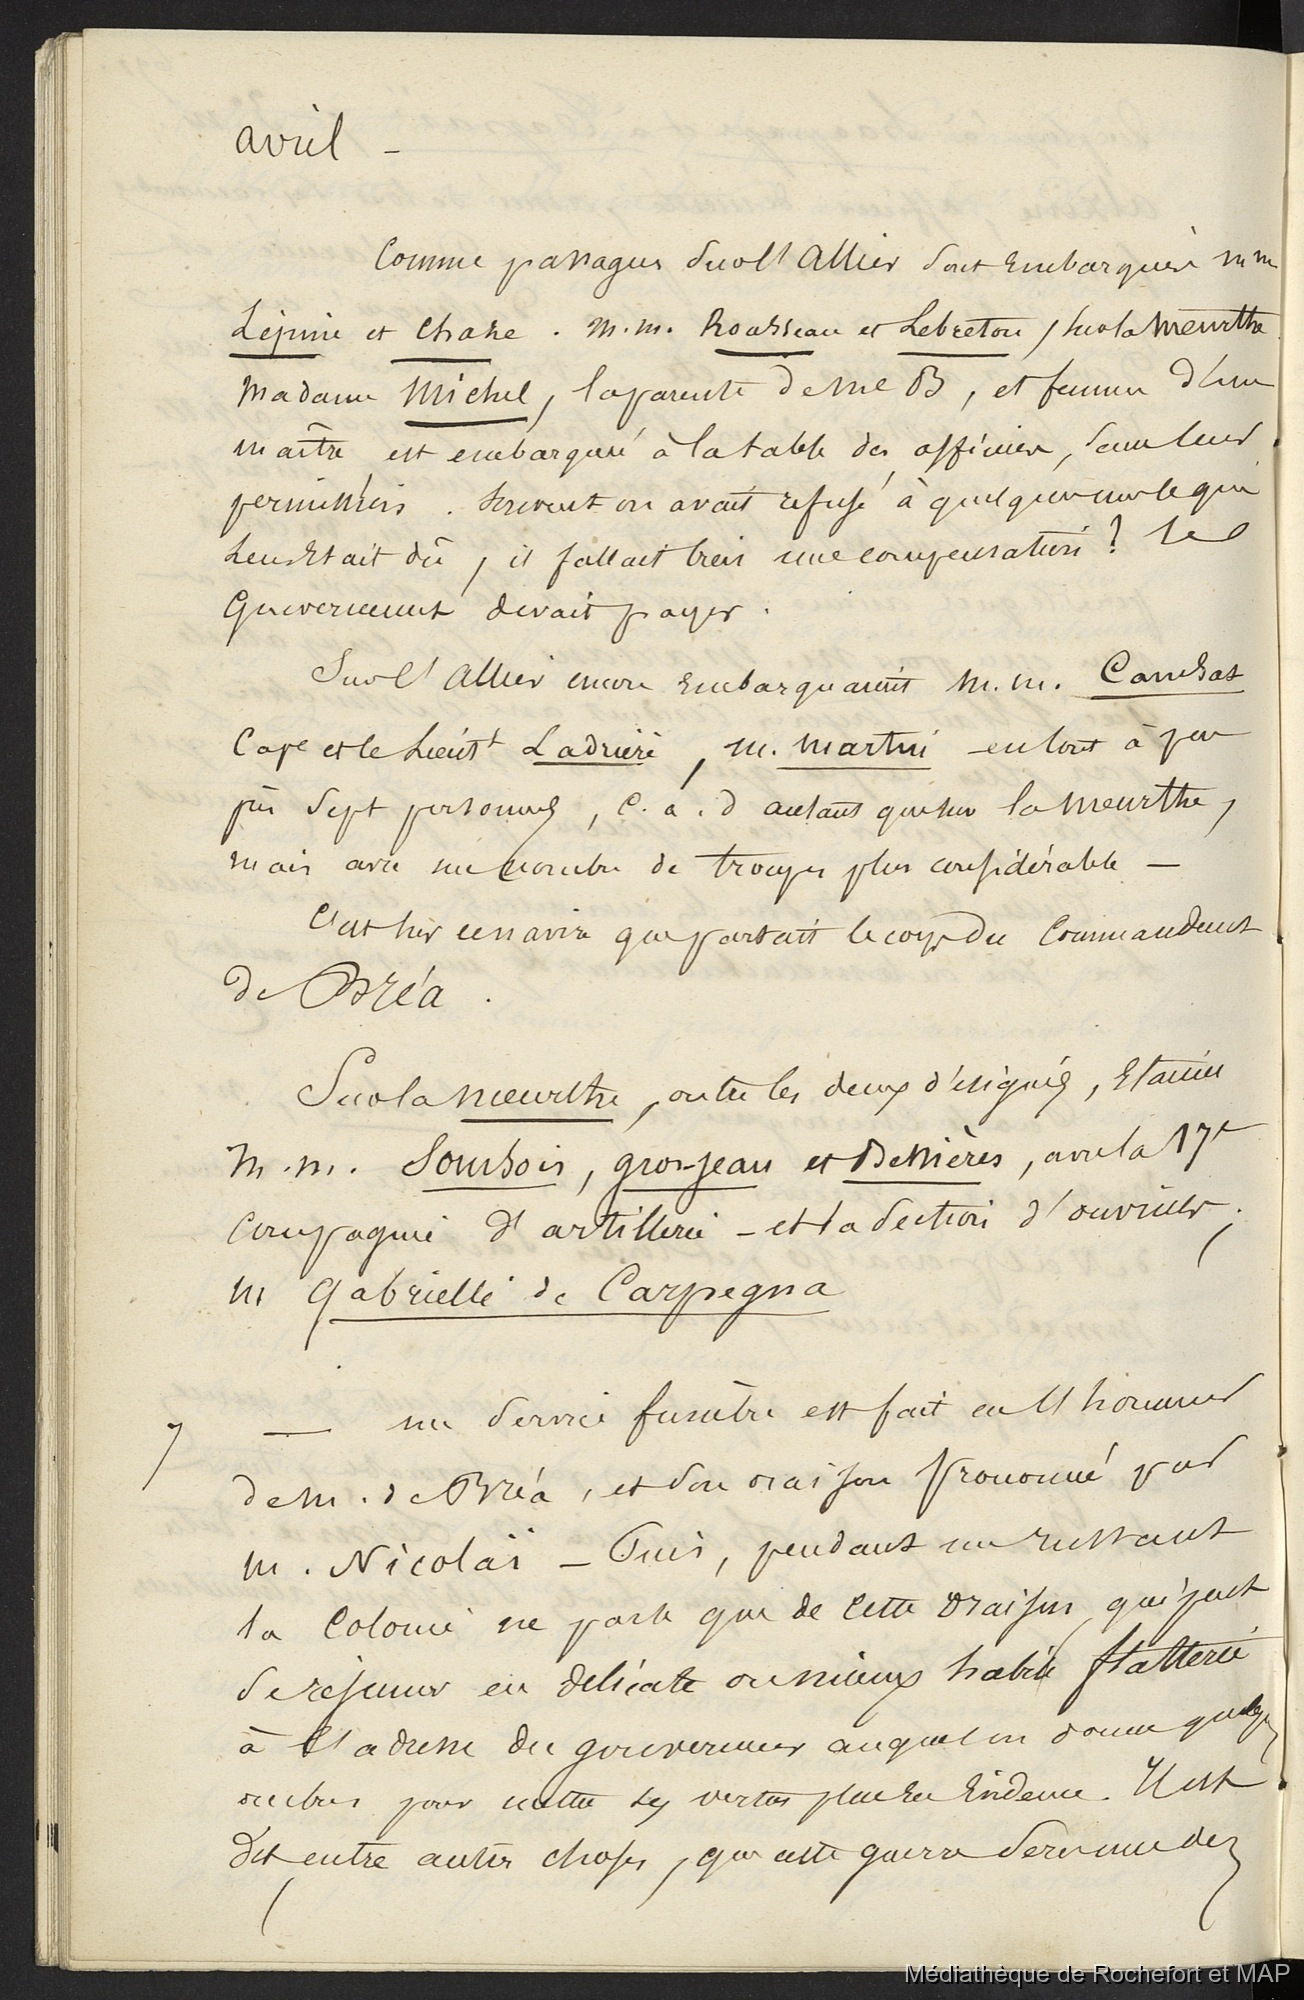 avril –
Comme passagers sur l'Allier sont embarqués m m
Lépine et Chane . m.m. Rousseau et Lebreton, sur la Meurthe
Madame Michel, la parente de Mme B, et femme d'un
maître est embarquée à la table des officiers, sans leur
permission . souvent on avait refusé à quelques uns ce qui
leur était dû, il fallait bien une compensation ? le
Gouvernement devait payer .
Sur l'Allier encore embarquaient M. m.
Cape et le Lieutt Ladrière, m. Martin – en tout à peu
près sept personnes, c. a. d autant que sur la Meurthe,
mais avec un nombre de troupes plus considérable –
C'est sur ce navire que partait le corps du Commandant
de Bréa .
Sur la Meurthe, outre les deux désignés, étaient
m.m. Soursois, grosjean et Bessières, avec la 17e
compagnie d'artillerie – et la section d'ouvriers,
m Gabrielli de Carpegna
7 — un service funèbre est fait en l'honneur
de m. de Bréa, et son oraison prononcée par
m. Nicolaï – Puis, pendant un instant
la Colonie ne parle que de cette oraison, qui peut
se résumer en délicate ou mieux habile flatterie
à l'adresse du gouverneur auquel on donne quelques
ombres pour mettre ses vertus plus en évidence. Il est
dit entre autres choses, que cette guerre sera une des
Médiathèque de Rochefort et MAP